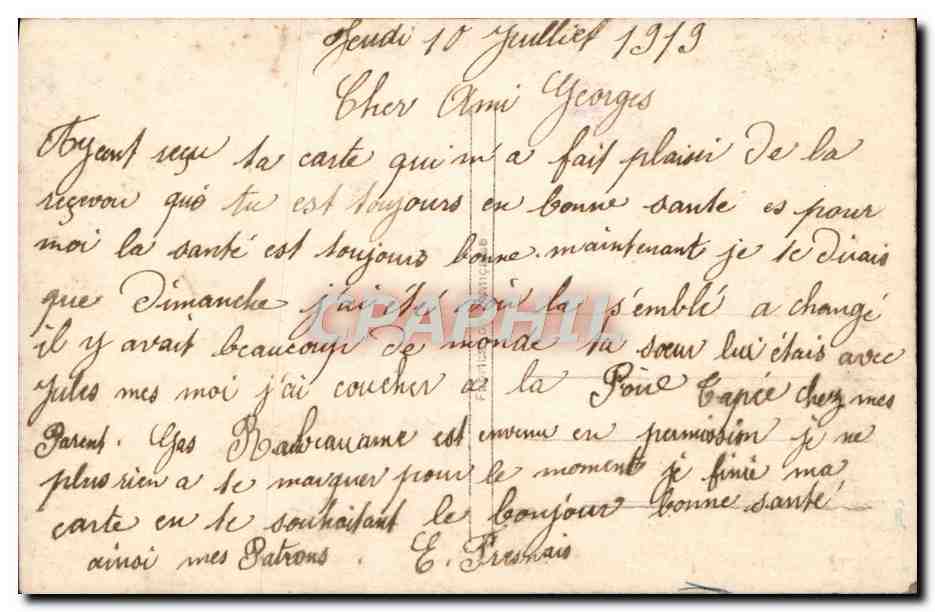 Jeudi 10 Juilliet 1919
Cher Ami Georges
Ayent reçu ta carte qui m'a fait plaisir de la
reçevou que tu est toujours en bonne santé es pour
moi la santé est toujours bonne. maintenant je te dirais
que Dimanche j'ai été voir la s'emblé a changé
il y avait beaucoup de monde ta sœur lui étais avec
Jules mes moi j'ai coucher a la Poire Tapée chez mes
Parent. Gas est envenu en permission je ne
plus rien a te marquer pour le moment je finie ma
carte en te souhaitant le bonjour bonne santé
ainsi mes Patrons. E. Fresnais
CPAPHIL